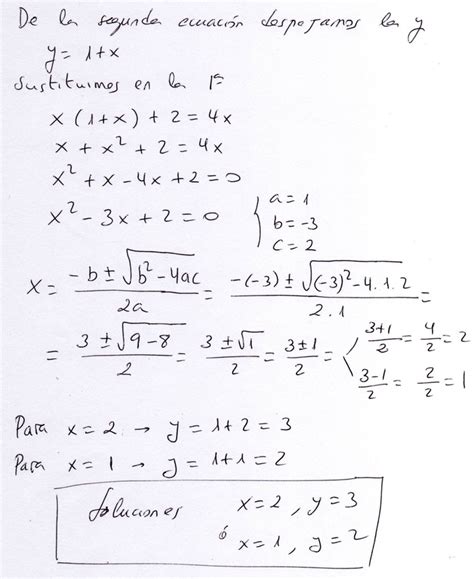 De la segunda ecuación despejamos la y
y = 1+x
Sustituimos en la 1ª
x (1+x) + 2 = 4x
x + x² + 2 = 4x
x² + x - 4x + 2 = 0
x² - 3x + 2 = 0 { a = 1
b = -3
c = 2
x = (-b ± √(b² - 4ac))/(2a) = (-(-3) ± √((-3)² - 4.1.2))/(2.1) =
= (3 ± √(9-8))/2 = (3 ± √1)/2 = (3±1)/2 = (3+1)/2 = 4/2 = 2
(3-1)/2 = 2/2 = 1
Para x = 2 → y = 1+2 = 3
Para x = 1 → y = 1+1 = 2
Soluciones x = 2, y = 3
ó
x = 1, y = 2